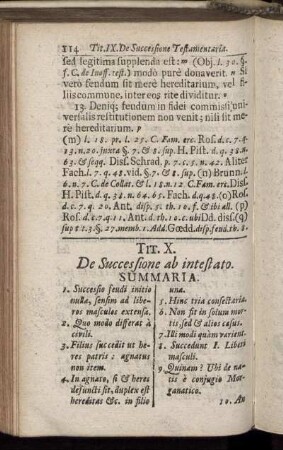 114 Tit. IX. De Successione Testamentaria.
sed legitima supplenda est: = (Obj. l. 30. §.
f. C. de Inoff. test.) modò purè donaverit. n Si
verò feudum sit merè hereditarium, vel fi
liis commune, inter eos rite dividitur.
13. Deniq; feudum in fidei commissi univ
ersalis restitutionem non venit; nisi sit me
rè hereditarium. p
(m) l. 18. pr. l. 25. C. Fam. erc. Ros. d. c. 7. q.
83. n. 20. juncta §. 7. & 8. sup. H. Pist. d. q. 38. n.
63. & seqq. Diss. Schrad. p. 7. c. 5. n. 42. Aliter
Fach. l. 7. q. 48. vid. §. 7. & 8. sup. (n) Brunn. l.
6. n. 7. C. de Collat. & l. 18. n. 12. C. Fam. erc. Diss.
H. Pist. d. q. 38. n. 64. 65. Fach. d. q. 48. (o) Ros.
d. c. 7. q. 20. Ant. disp. 5. th. 10. f. & ibi all. (p)
Ros. d. c. 7. q. 11. Ant. d. th. 10. c. ubi Dd. diss. (q)
sup t. 3. §. 27. memb. 1. Add. Gœdd. disp. feud. th. 8.
TIT. X.
De Successione ab intestato.
SUMMARIA.
1. Successio feudi initio
nulla, sensim ad libe-
ros masculos extensa.
2. Quo modo differat à
civili.
3. Filius succedit ut he
res patris: agnatus
non item.
4. In agnato, si & heros
defuncti sit, duplex est
hereditas &c. in filio
una.
5. Hinc tria consectaria.
6. Non sit in solum mor-
tis, sed & alios casus.
7. Ibi modi quàm varient.
8. Succedunt I. Liberi
masculi.
9. Quinam? Ubi de na-
tis è conjugio Mor-
ganatico.
10. An